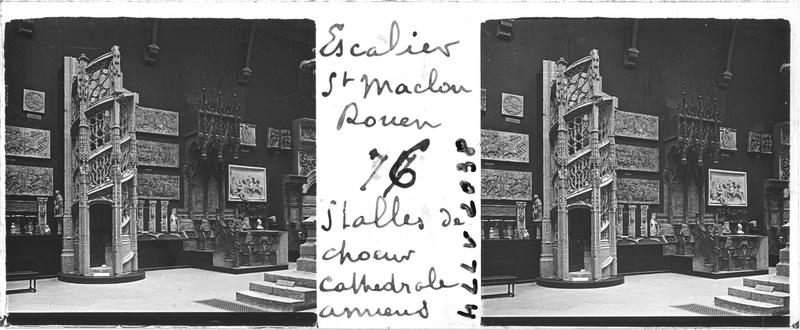 Escalier
St Maclou
Rouen
76
Stalles de
choeur
cathedrale
amiens